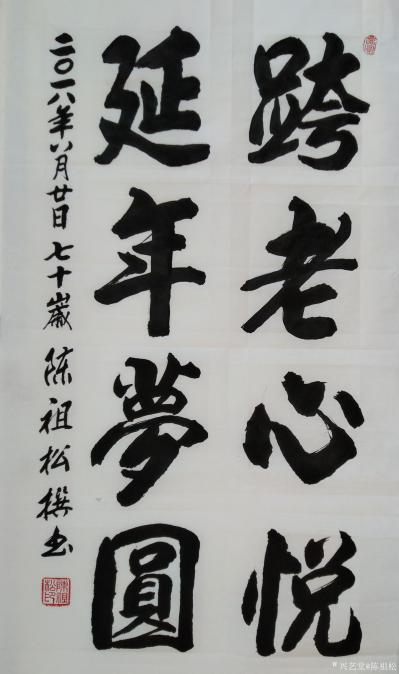 跨老心悦
延年夢圓
二〇一八年八月廿日 七十歲 陈祖松撰书
陳祖松印
兴艺堂@陈祖松